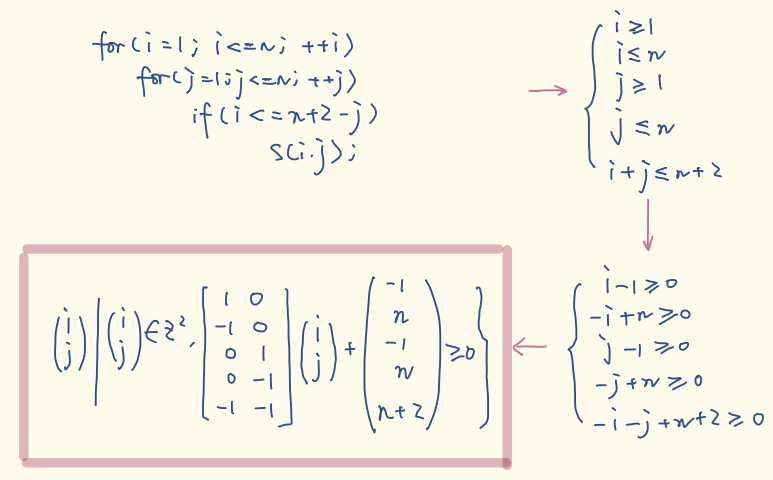 for(i=1; i<=n; ++i)
for(j=1; j<=n; ++j)
if(i<=n+2-j)
S(i.j);
i≥1
i≤n
j≥1
j≤n
i+j≤n+2
i-1≥0
-i+n≥0
j-1≥0
-j+n≥0
-i-j+n+2≥0
(i j) | (i j) ∈ Z², [1 0 -1 0 0 1 0 -1 -1 -1] (i j) + (-1 n -1 n n+2) ≥0 }